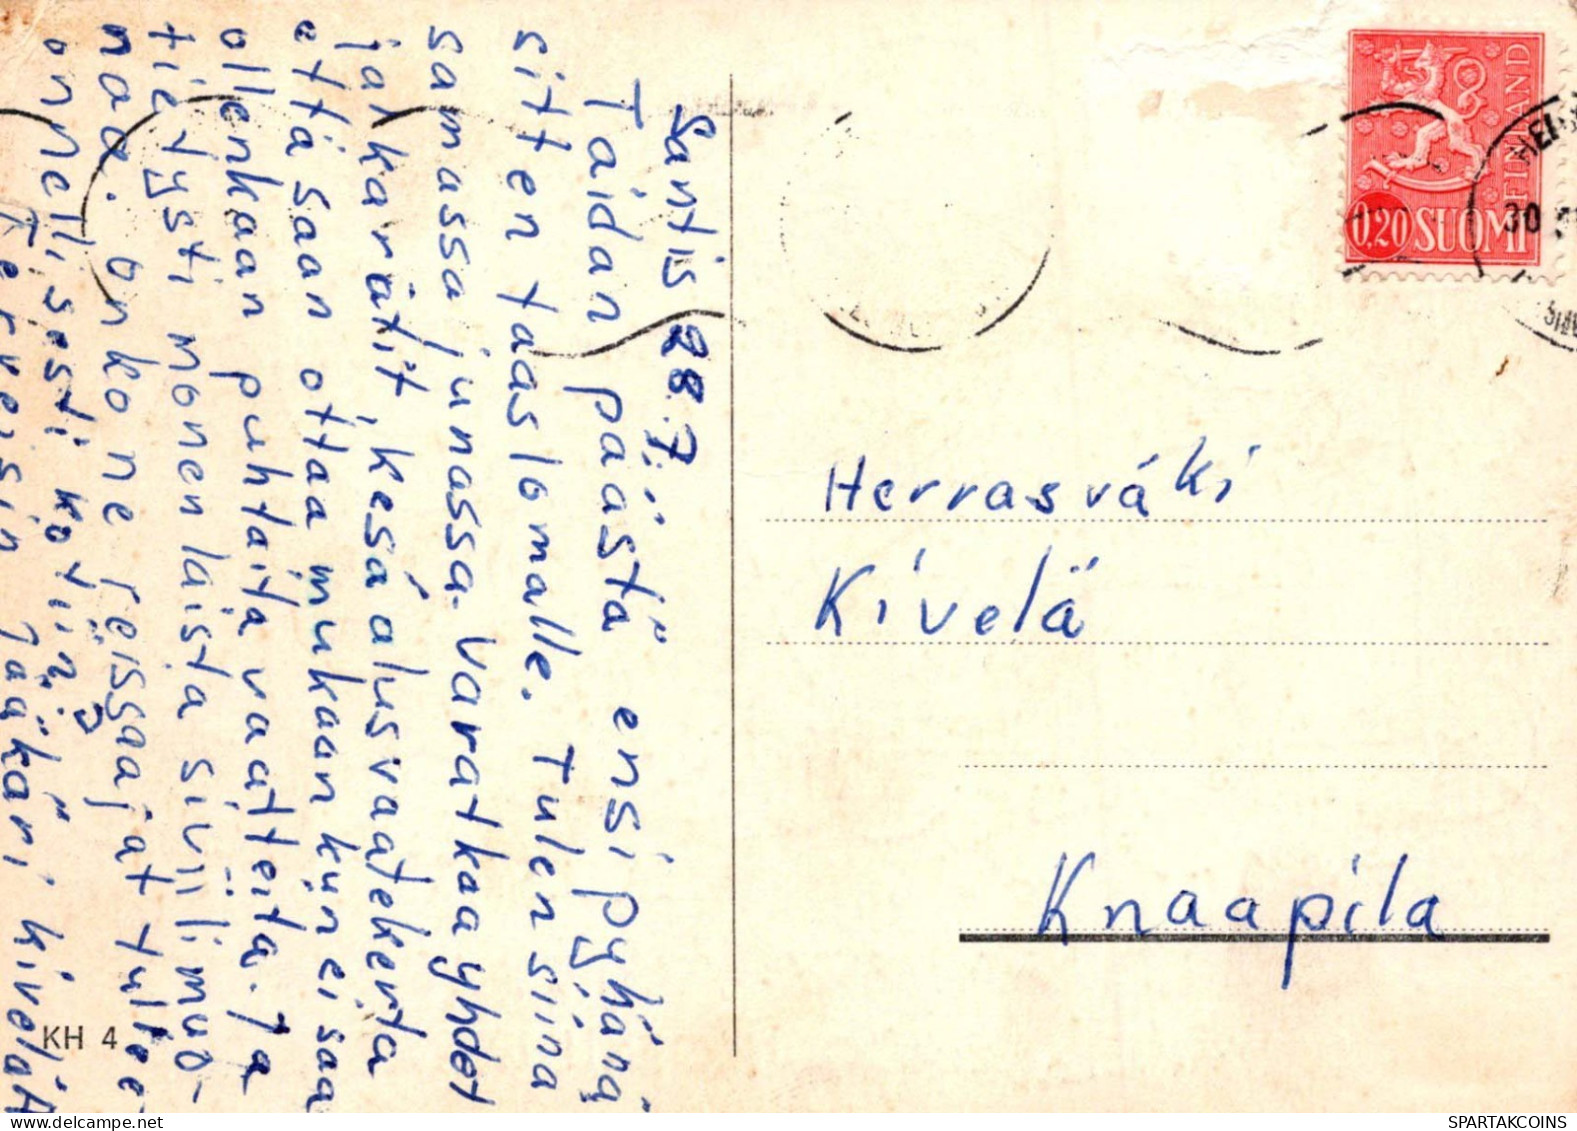 Santis 28.7.
Taidan päästä ensi pyhänä
sitten taas lomalle. Tulen siinä
samassa junassa. Varatkaa yhdet
jalkarätit, kesäalusvaatekerta
että saan ottaa mukaan kun ei saa
ollenkaan puhtaita vaatteita. Ja
tietysti monenlaista siviilimuo-
naa. Onko ne reissaajat tullee
onnellisesti kotiin?
Terveisin Jääkäri Kivelä
KH 4
FINLAND
0.20 SUOMI
30
Herrasväki
Kivelä
Knaapila
SPARTAKCOINS
www.delcampe.net
SPARTAKCOINS